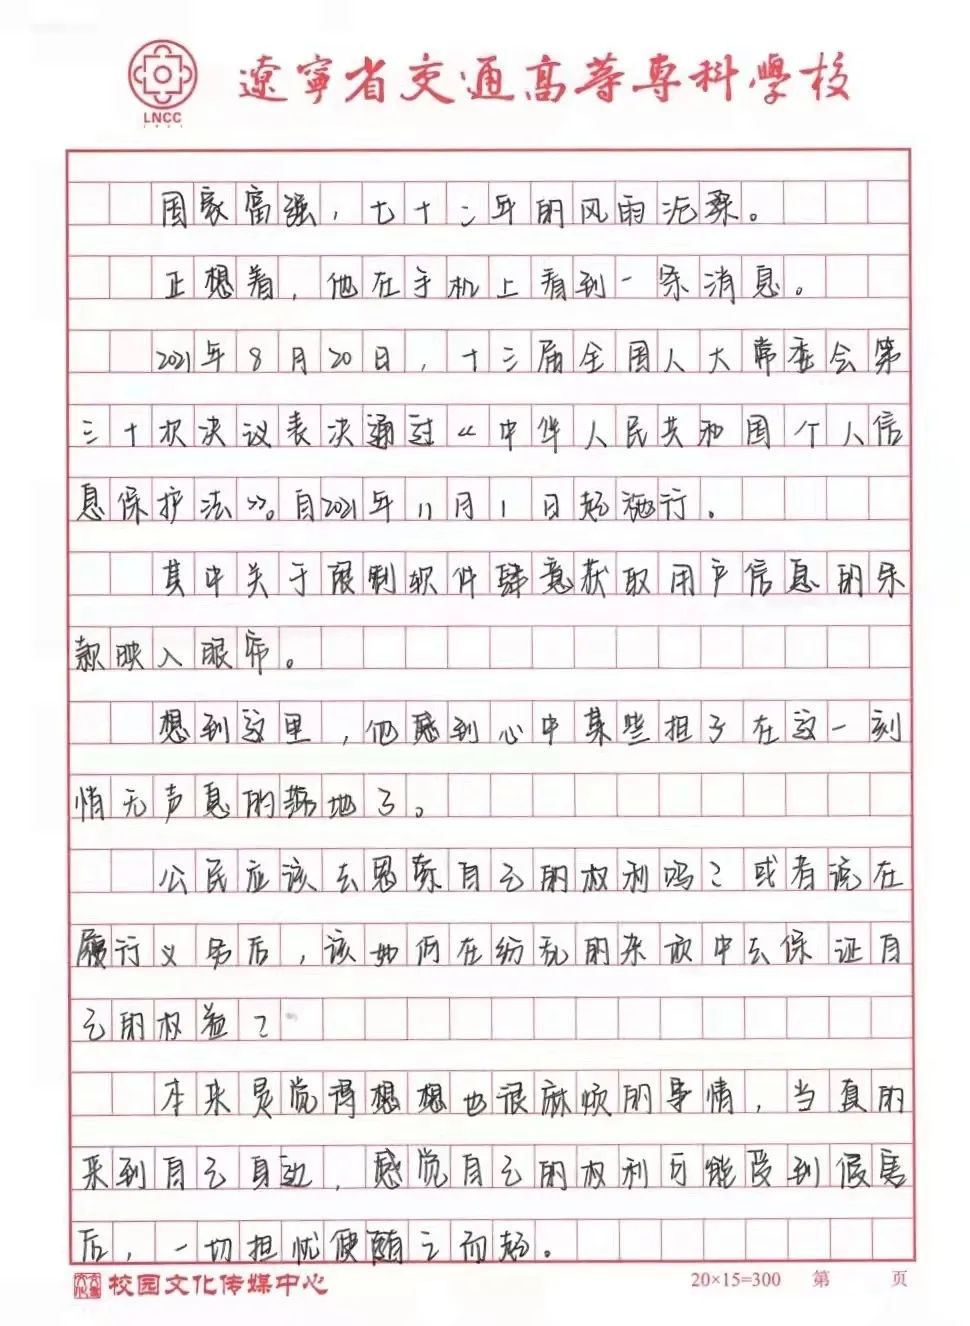 LNCC
遼寧省交通高等專科學校
国家富强，七十二年的风雨沧桑。
正想着，他在手机上看到一条消息。
2021年8月20日，十三届全国人大常委会第
三十次决议表决通过《中华人民共和国个人信
息保护法》。自2021年11月1日起施行。
其中关于限制软件肆意获取用户信息的条
款映入眼帘。
想到这里，他感到心中某些担子在这一刻
悄无声息的落地了。
公民应该去思索自己的权利吗？或者说在
履行义务后，该如何在纷乱的条款中去保证自
己的权益？
本来是觉得想想也很麻烦的事情，当真的
来到自己身边，感觉自己的权利可能受到侵害
后，一切担忧便随之而起。
校园文化传媒中心 20×15=300 第 页